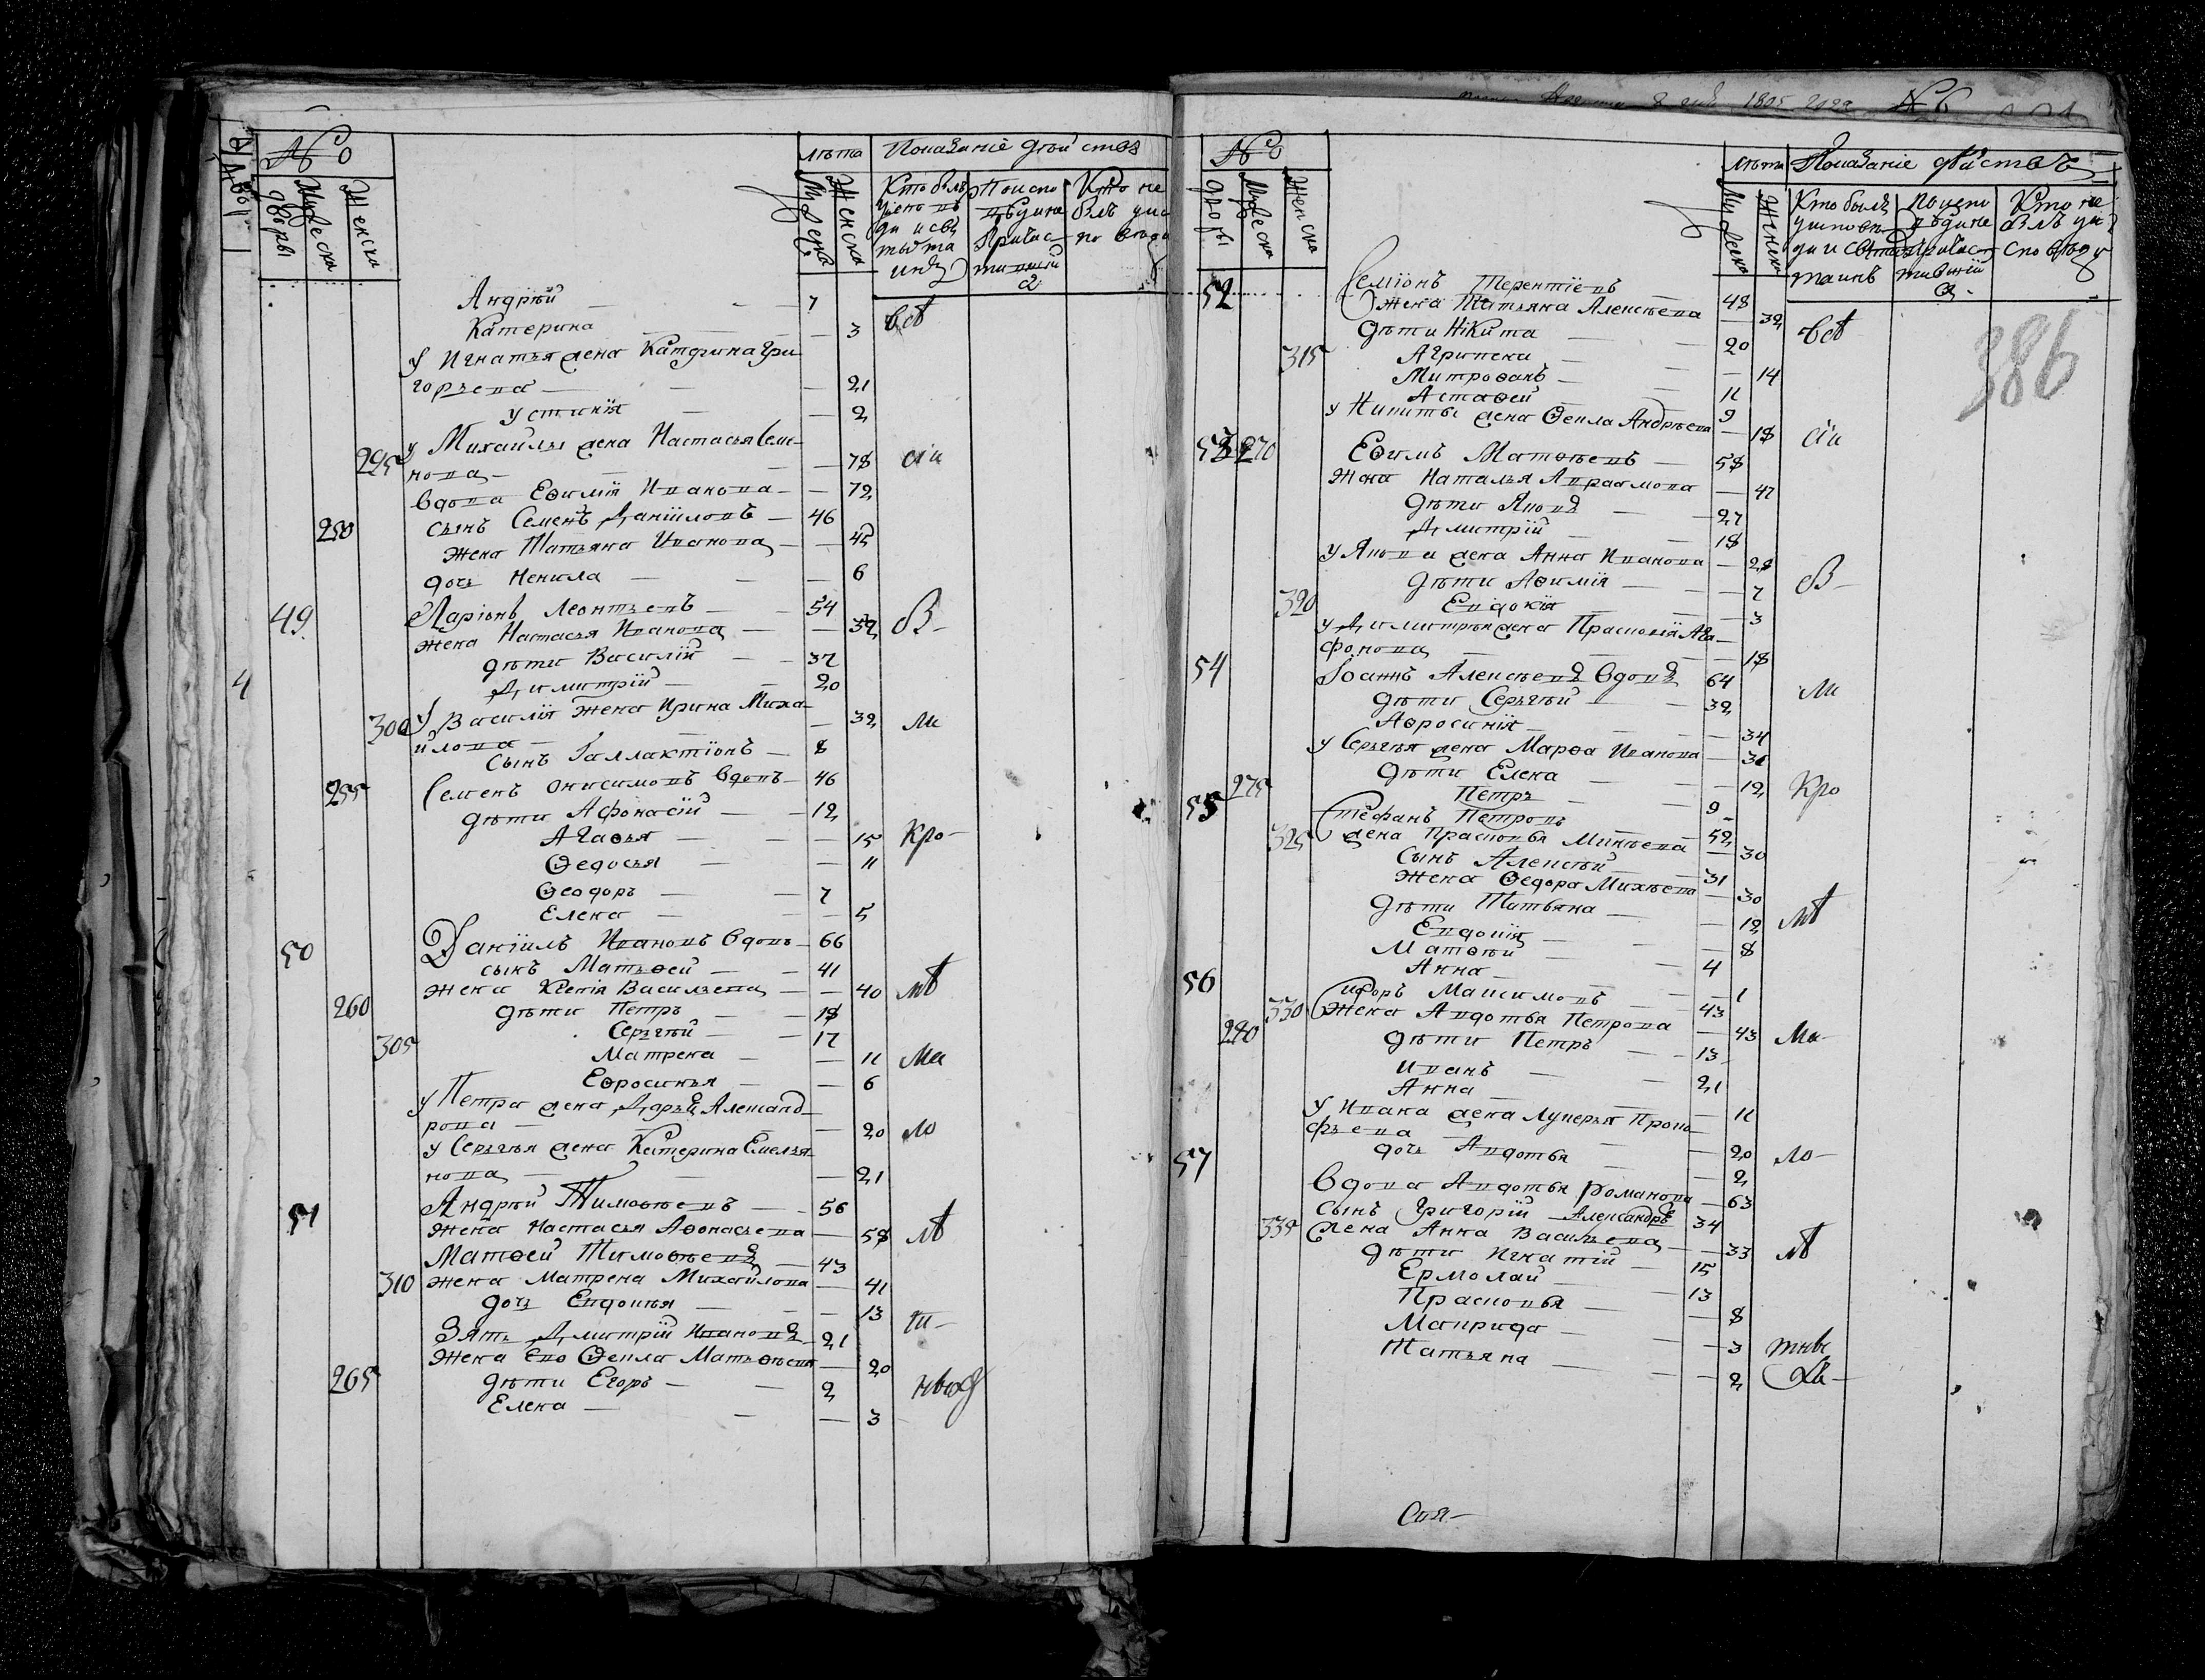 №
лѣта Показаніе дѣйствъ
дворы
Мужеска
Женска
Мужеска
Женска
Кто былъ
Кто не
былъ
Андрѣй — — 7
Катерина — — 3 всѣ
У Игнатья жена Катерина Гри
горьева — — 21
Устинія — — 2
295 У Михайлы жена Настасья Семе
нова — — 78 сіи
вдова Еѳимія Иванова — — 72
250 сынъ Семенъ Даніиловъ — 46
жена Татьяна Иванова — — 45
дочь Ненила — — 6
49 Ларіонъ Леонтьевъ — 54
жена Настасья Иванова — — 32 В-
дѣти Василій — 32
4 Димитрій — 20
300 У Василія жена Ирина Миха
йлова — — 32 ли
сынъ Галлактіонъ — 8
255 Семенъ Онисимовъ вдовъ — 46
дѣти Афонасій — 12
Агаѳья — — 15 кро-
Ѳедосья — — 11
Ѳеодоръ — 7
Елена — — 5
50 Даніилъ Ивановъ вдовъ — 66
сынъ Матьѳей — 41
жена Ксенія Васильева — — 40 мѣ
260 дѣти Петръ — 18
Сергѣй — 17
305 Матрена — — 11 ма
Еѳросинья — — 6
У Петра жена Дарья Александ
рова — — 20 ло
У Сергѣя жена Катерина Емелья
нова — — 21
51 Андрѣй Тимоѳѣевъ — 56
жена Настасья Аѳонасьева — 58 лѣ
Матѳей Тимоѳѣевъ — 43
310 жена Матрена Михайлова — 41
дочь Евдокѣя — — 13
Зять Дмитрій Ивановъ — 21 ти-
жена его Ѳекла Матьѳѣева — 20
265 дѣти Егоръ — 2
Елена — — 3
1805 года № 6
№
лѣта Показаніе дѣйствъ
дворы
Мужеска
Женска
Мужеска
Женска
Кто былъ
Кто не
386
52 Семіонъ Терентіевъ — 48
жена Татьяна Алексѣева — 32
дѣти Нікита — 20 всѣ
315 Агрипена — — 14
Митроѳанъ — 11
Астаѳей — 9
У Никиты жена Ѳекла Андрѣева — 18 сіи
53 270 Еѳимъ Матѳѣевъ — 58
жена Наталья Авраамова — 47
дѣти Яковъ — 27
Дмитрій — 18
У Якова жена Анна Иванова — 28
дѣти Аѳимія — — 7 В-
320 Евдокія — — 3
У Димитрія жена Прасковія Ага
фонова — — 18
54 Іоаннъ Алексѣевъ вдовъ 64
дѣти Сергѣй — 32 ли
Аѳросинія — — 34
У Сергѣя жена Марѳа Иванова — 31
дѣти Елена — — 12 кро
275 Петръ — 9
55 Стефанъ Петровъ — 52
325 жена Прасковья Микѣева — 30
сынъ Алексѣй — 31
жена Ѳедора Михѣева — 30
дѣти Татьяна — — 12 мѣ
Евдокія — — 8
Матѳѣй — 4
Анна — — 1
56 Максимовъ — 43
330 жена Авдотья Петрова — 43 ма-
280 дѣти Петръ — 13
Иванъ — 21
Анна — — 11
У Ивана жена Лукерья Проко
фьева — — 20 ло-
дочь Авдотья — — 2
57 вдова Авдотья Романова — 63
сынъ Григорій Александръ 34
335 жена Анна Васильева — 33 лѣ
дѣти Игнатій — 15
Ермолай — 13
Прасковья — — 8
Маврида — — 3
Татьяна — — 2